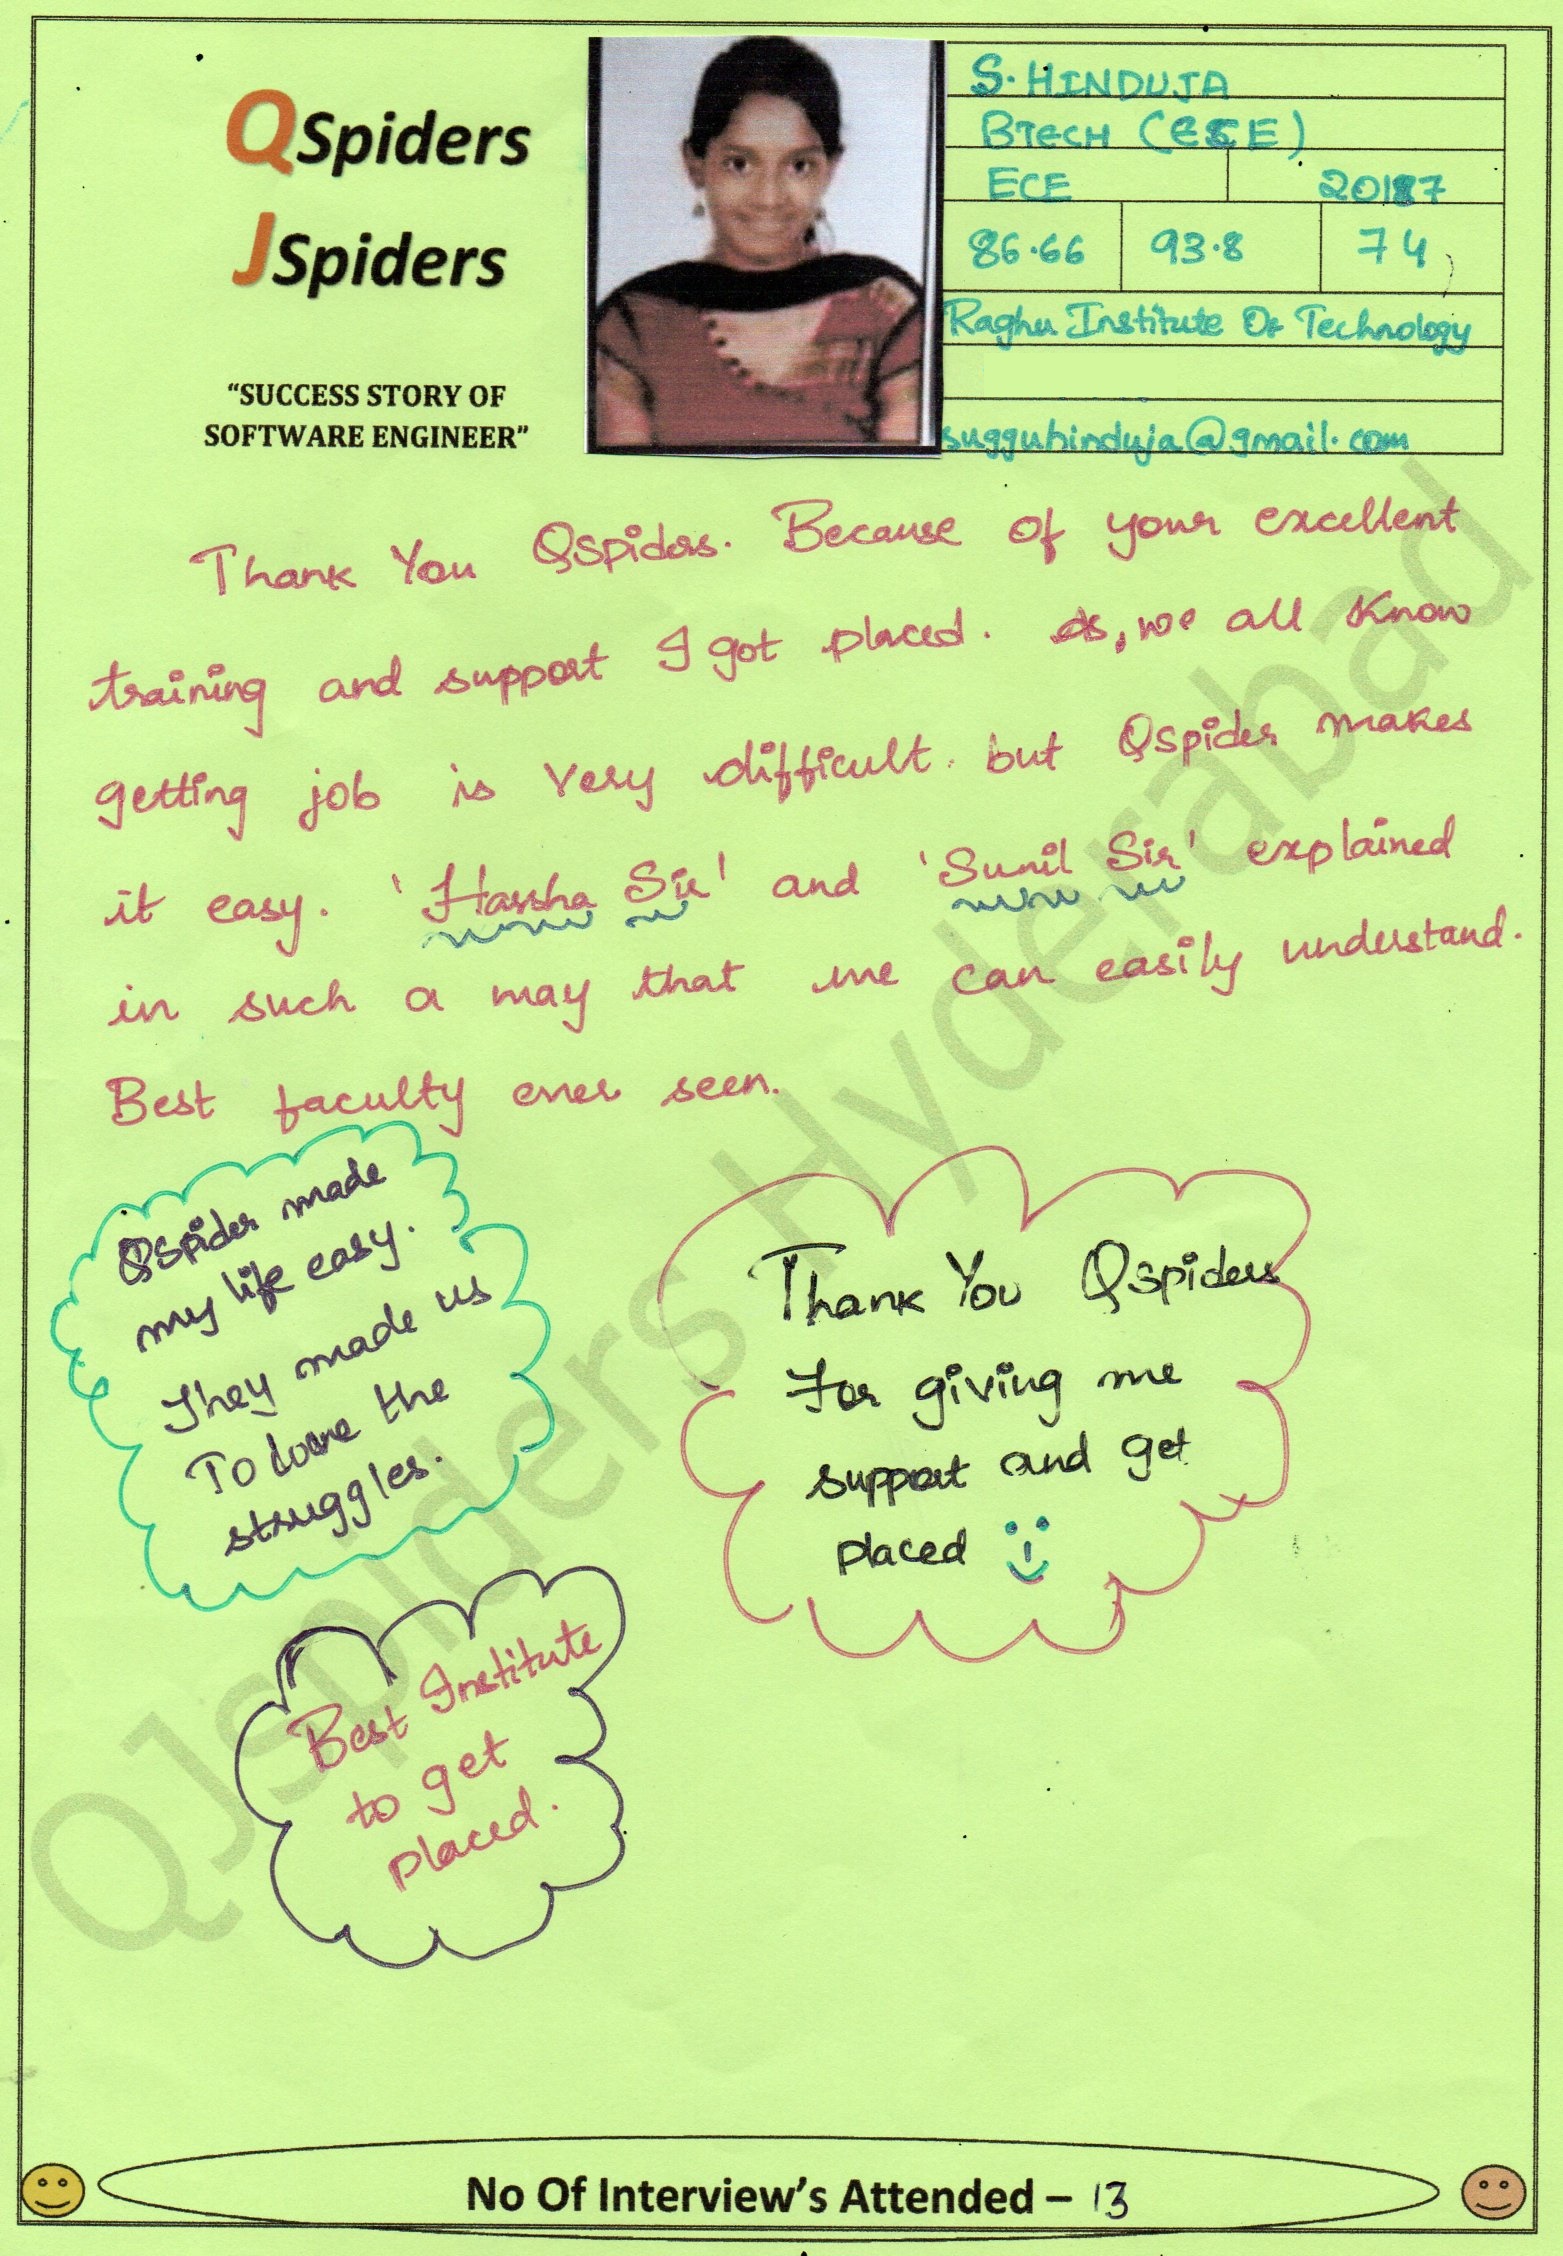 QSpiders
JSpiders
"SUCCESS STORY OF
SOFTWARE ENGINEER"
S. HINDUJA
BTECH (ECE)
ECE 2017
86.66 93.8 74
Raghu Institute Of Technology
sugguhinduja@gmail.com
Thank You QSpiders. Because of your excellent
training and support I got placed. As, we all know
getting job is very difficult. but QSpider makes
it easy. 'Harsha Sir' and 'Sunil Sir' explained
in such a way that we can easily understand.
Best faculty ever seen.
QSpider made
my life easy.
They made us
To the
struggles.
Thank You QSpiders
For giving me
support and get
placed
Best Institute
to get
placed.
QJspiders Hyderabad
No Of Interview's Attended – 13